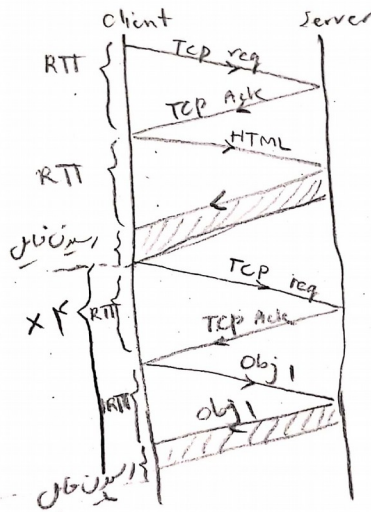 Client Server
TCP req
RTT
TCP Ack
HTML
RTT
رسیدن فایل
TCP req
×۴ RTT
TCP Ack
Obj 1
RTT
Obj 1
رسیدن فایل